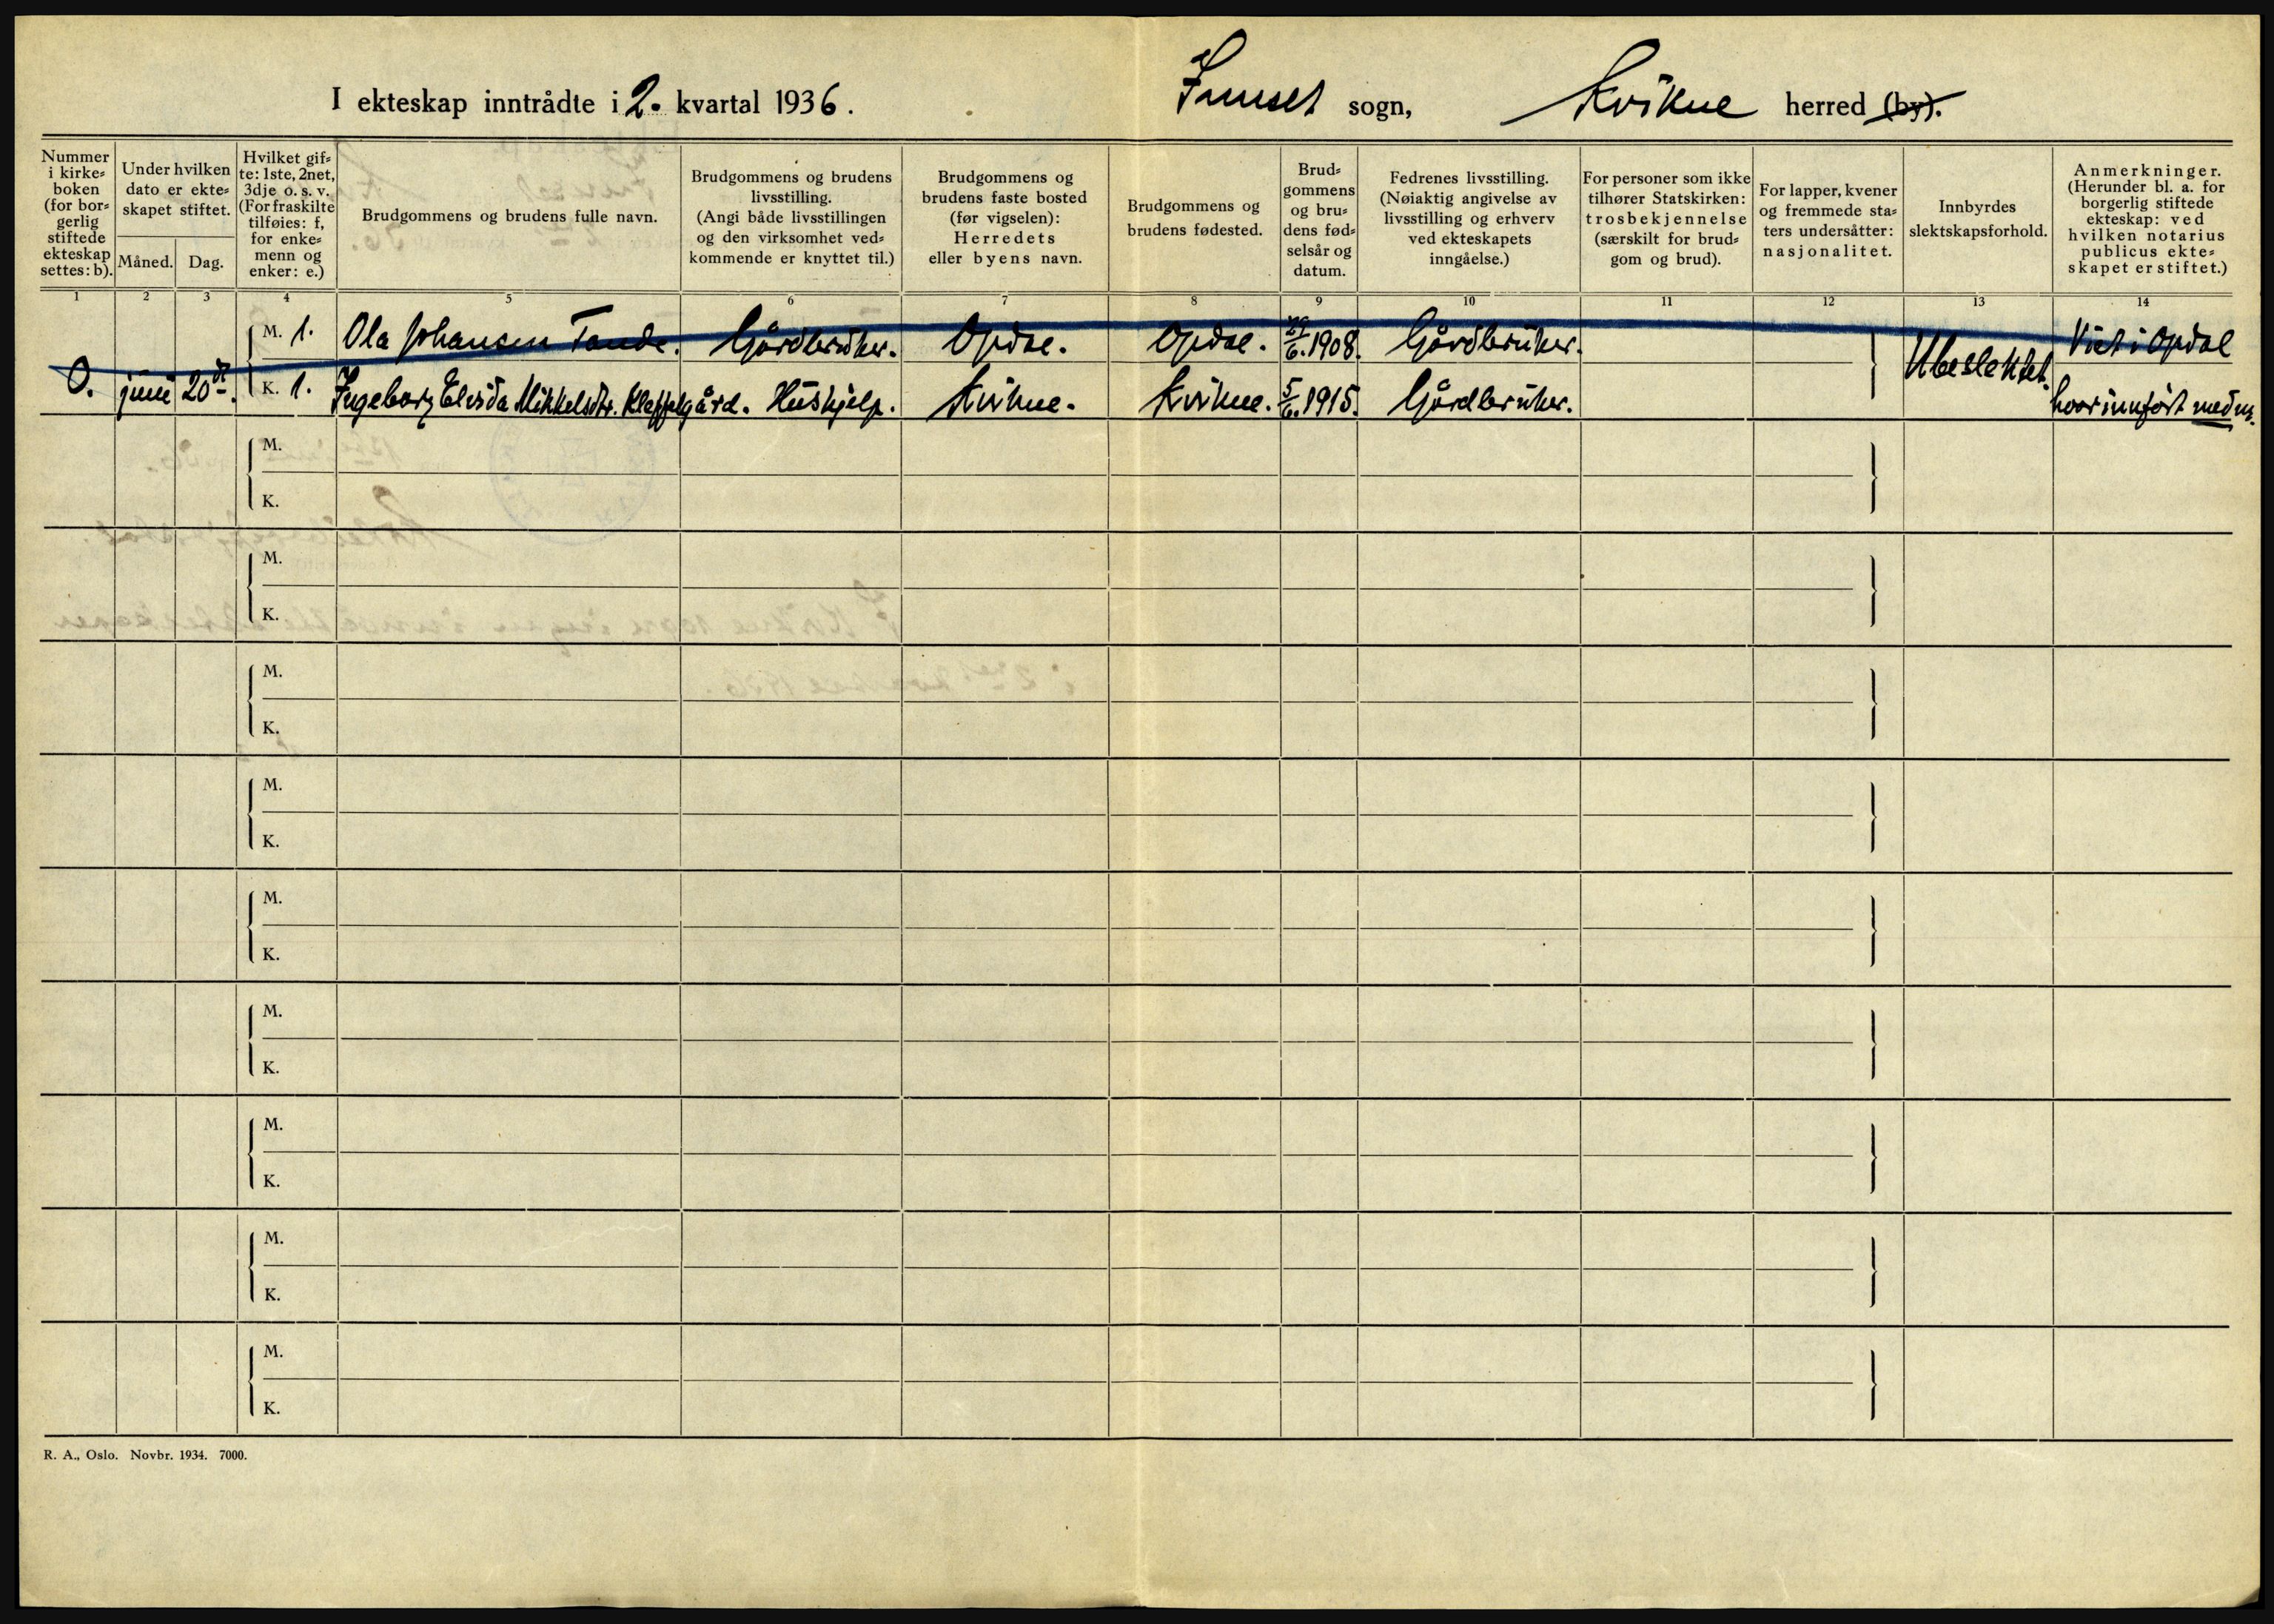 I ekteskap inntrådte i 2. kvartal 1936.
Innset sogn, Kvikne herred (by).
Nummer i kirke= boken (for bor= gerlig stiftede ekteskap settes: b).
Under hvilken dato er ekte= skapet stiftet.
Måned. Dag.
Hvilket gif= te: 1ste, 2net, 3dje o. s. v. (For fraskilte tilføies: f, for enke= menn og enker: e.)
Brudgommens og brudens fulle navn.
Brudgommens og brudens livsstilling. (Angi både livsstillingen og den virksomhet ved= kommende er knyttet til.)
Brudgommens og brudens faste bosted (før vigselen): Herredets eller byens navn.
Brudgommens og brudens fødested.
Brud= gommens og bru= dens fød= selsår og datum.
Fedrenes livsstilling. (Nøiaktig angivelse av livsstilling og erhverv ved ekteskapets inngåelse.)
For personer som ikke tilhører Statskirken: trosbekjennelse (særskilt for brud= gom og brud).
For lapper, kvener og fremmede sta= ters undersåtter: nasjonalitet.
Innbyrdes slektskapsforhold.
Anmerkninger. (Herunder bl. a. for borgerlig stiftede ekteskap: ved hvilken notarius publicus ekte= skapet er stiftet.)
1 2 3 4 5 6 7 8 9 10 11 12 13 14
M. 1. Ola Johansen Tande. Gårdbruker. Opdal. Opdal. 6. 1908. Gårdbruker. Viet i Opdal
0. juni 20de. Ubeslektet.
K. 1. Ingeborg Elvida Mikkelsdtr. Kleppelgård. Hushjelp. Kvikne. Kvikne. 5/6. 1915. Gårdbruker. hvor innført med nr.
M.
K.
M.
K.
M.
K.
M.
K.
M.
K.
M.
K.
M.
K.
M.
K.
M.
K.
R. A., Oslo. Novbr. 1934. 7000.